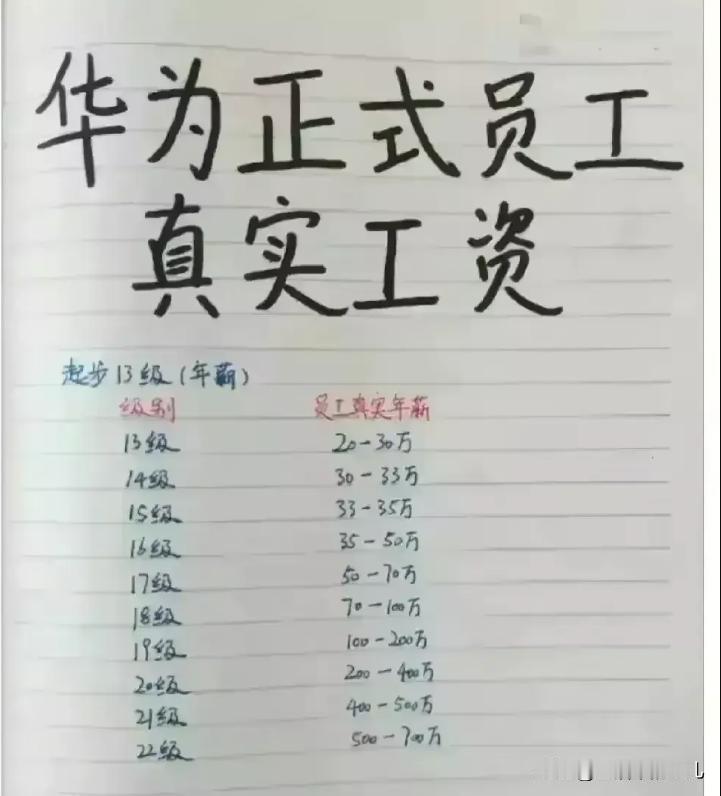 华为正式员工
真实工资
起步13级(年薪)
级别 员工真实年薪
13级 20-30万
14级 30-33万
15级 33-35万
16级 35-50万
17级 50-70万
18级 70-100万
19级 100-200万
20级 200-400万
21级 400-500万
22级 500-700万